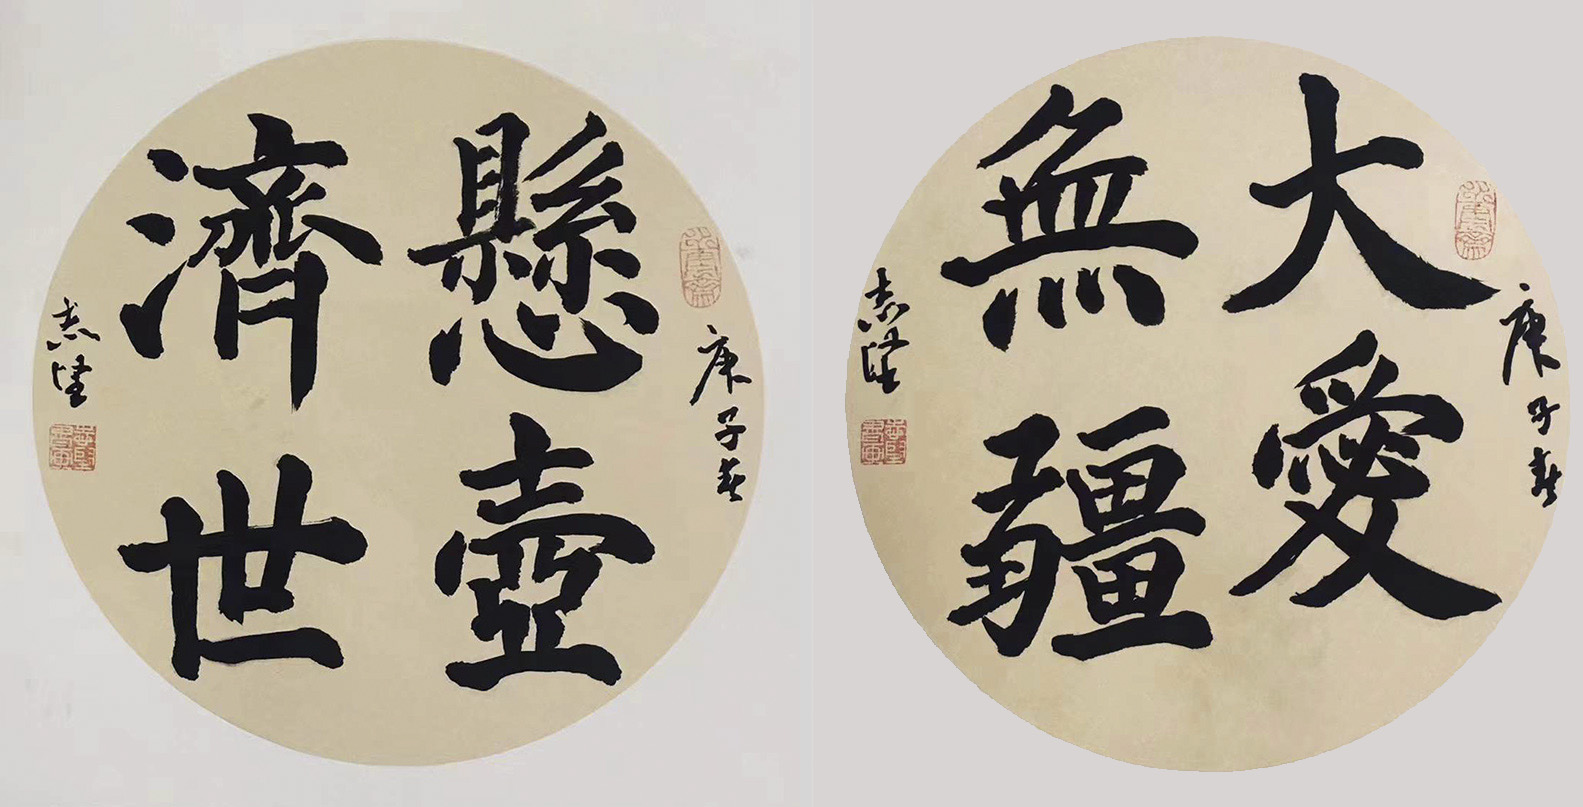 懸壺
濟世
庚子春
志堅
大愛
無疆
庚子春
志堅